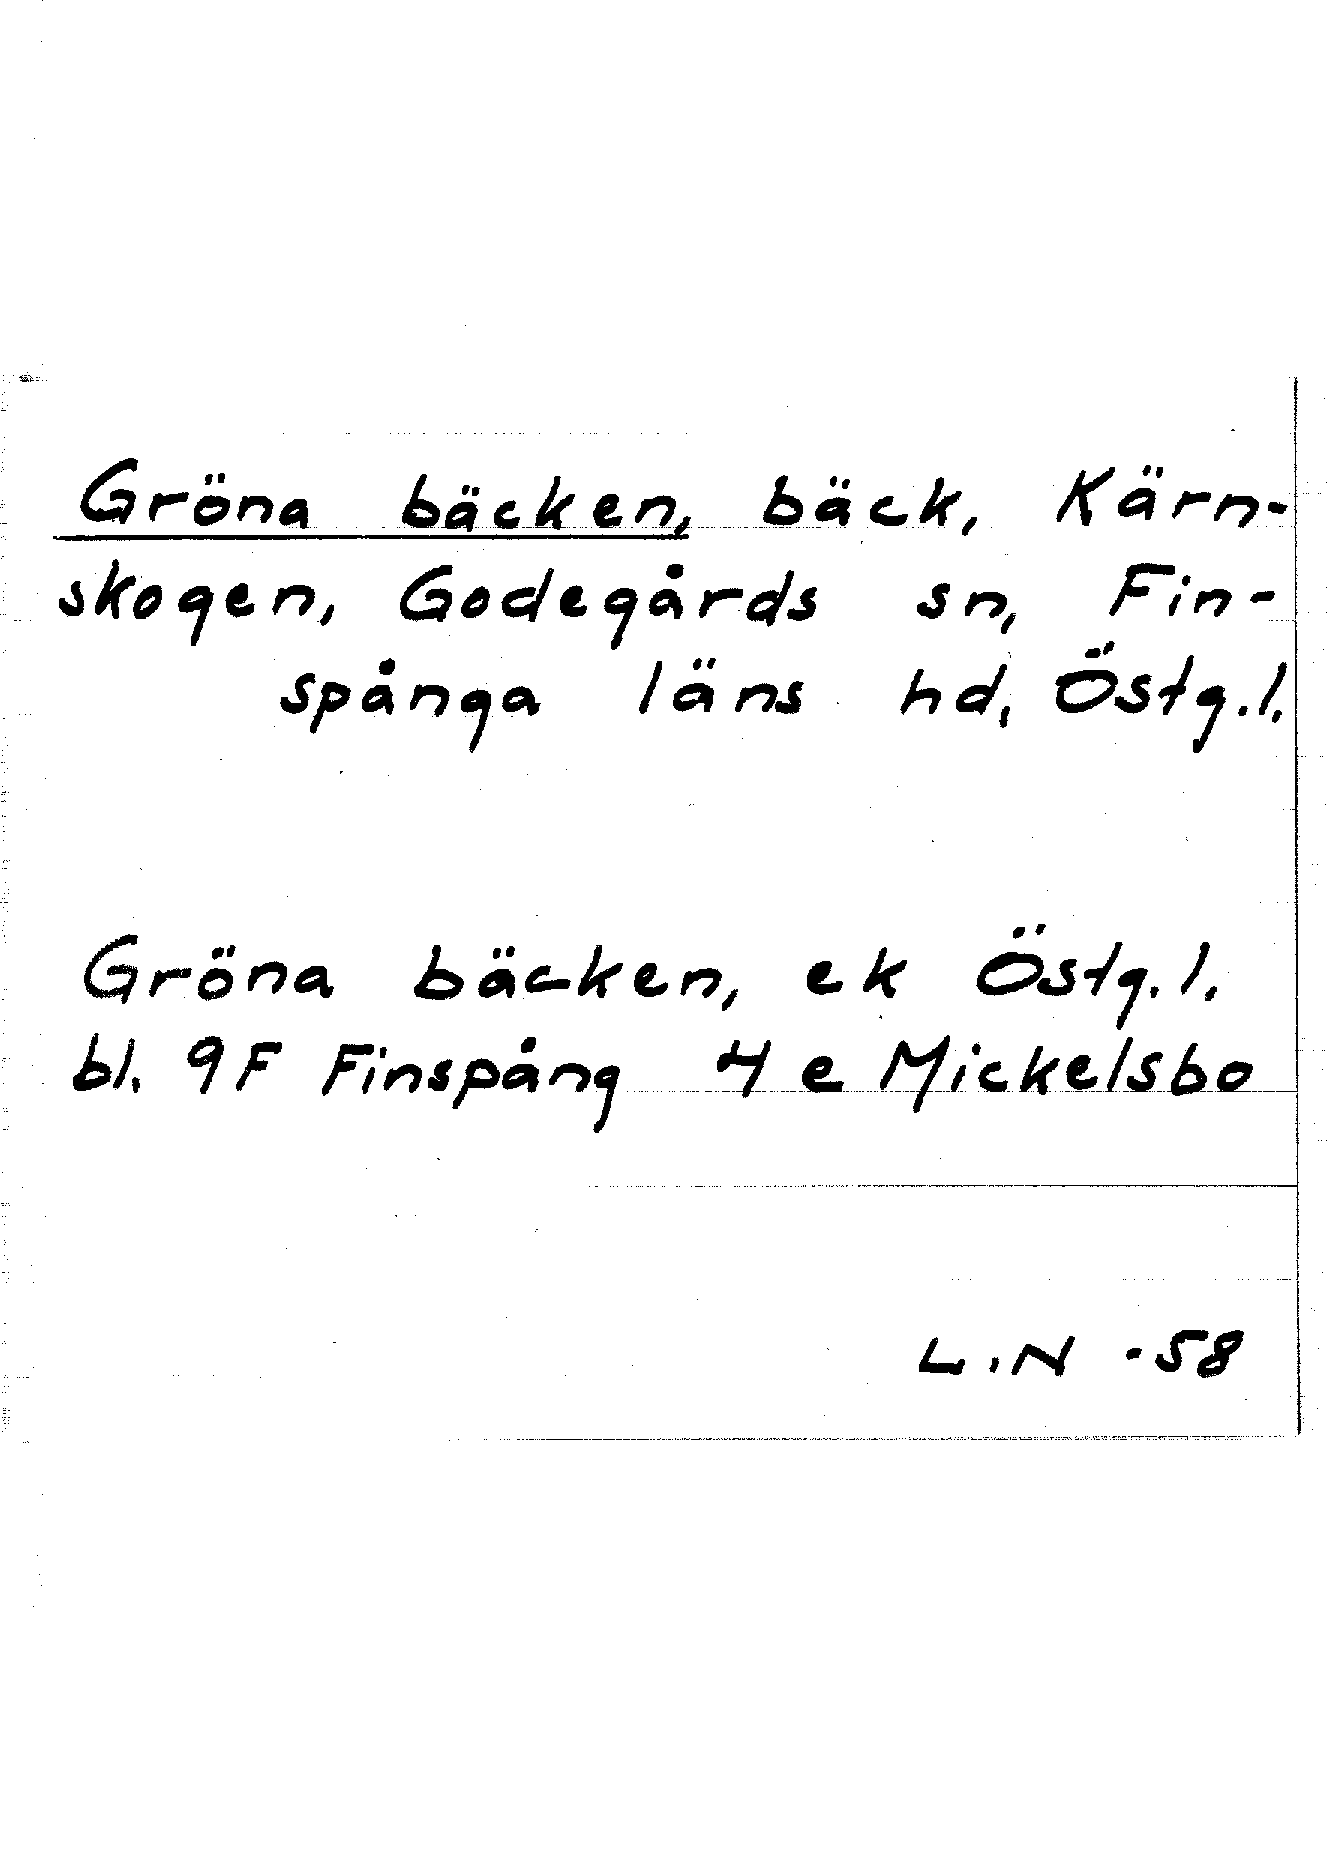 Gröna bäcken, bäck, Kärn-
skogen, Godegårds sn, Fin-
spånga läns hd, Östg.l.
Gröna bäcken, ek Östg.l.
bl. 9F Finspång 4 e Mickelsbo
L.N -58